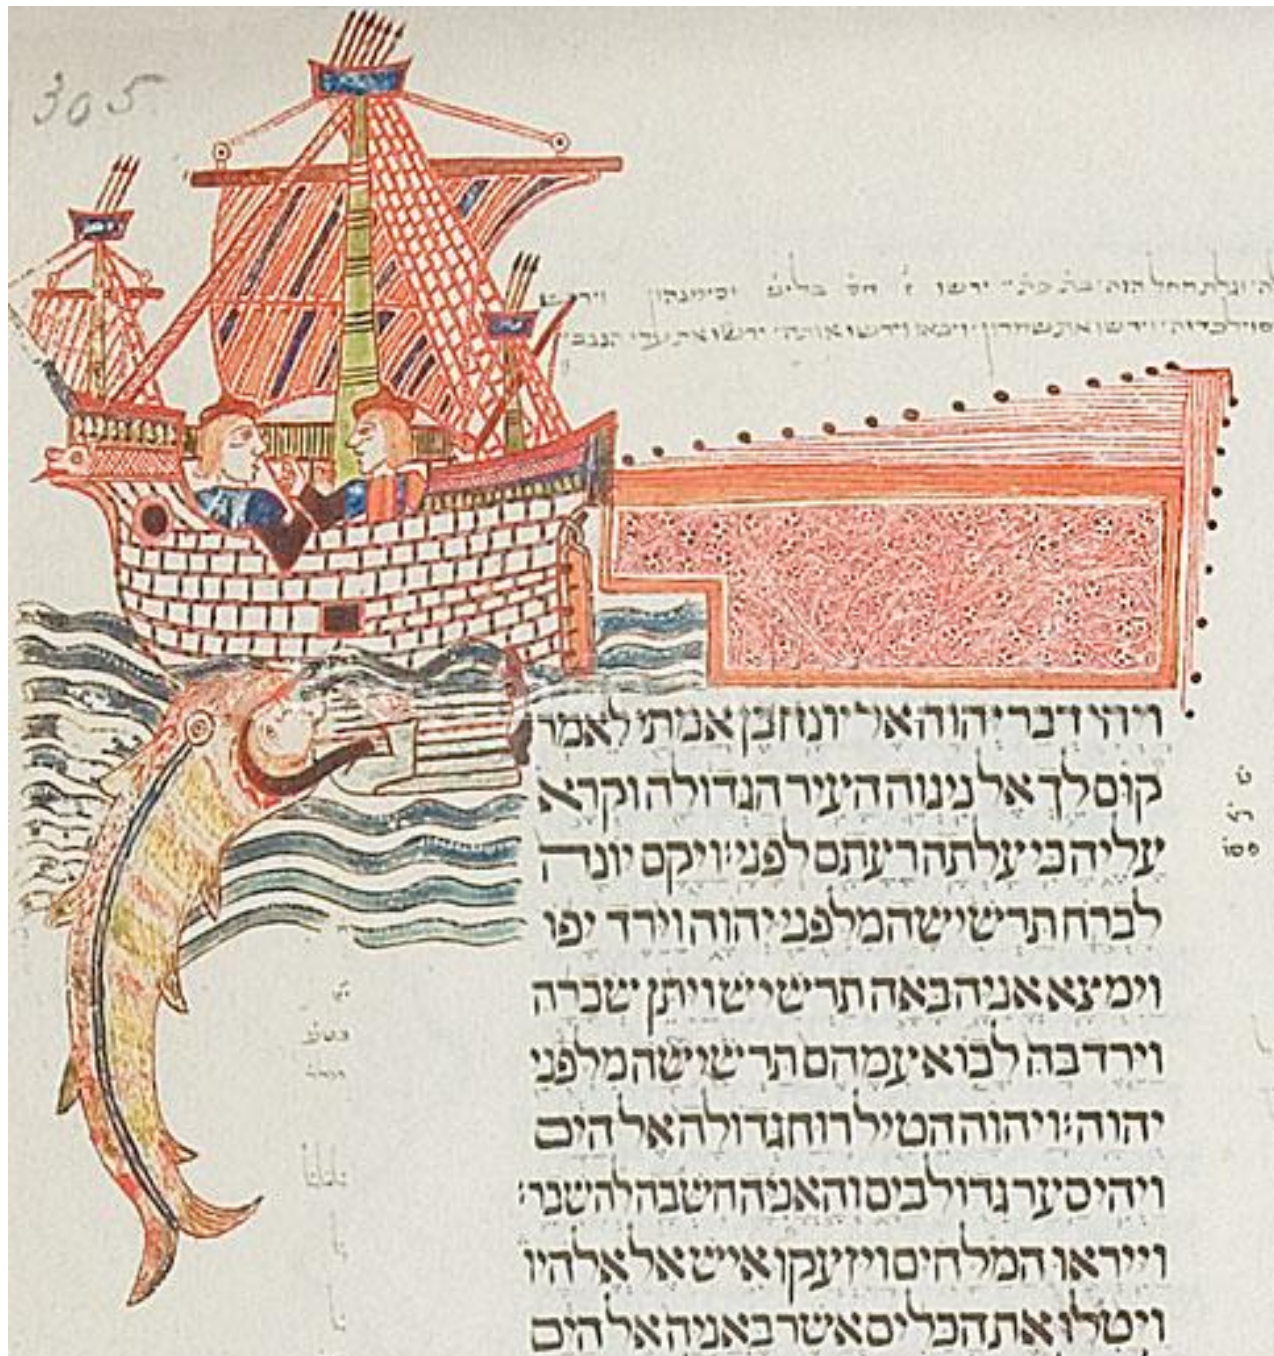 305
ויהי דבר יהוה אל יונה בן אמתי לאמר
קום לך אל נינוה העיר הגדולה וקרא
עליה כי עלתה רעתם לפני׃ ויקם יונה
לברח תרשישה מלפני יהוה וירד יפו
וימצא אניה באה תרשיש ויתן שכרה
וירד בה לבוא עמהם תרשישה מלפני
יהוה׃ ויהוה הטיל רוח גדולה אל הים
ויהי סער גדול בים והאניה חשבה להשבר׃
וייראו המלחים ויזעקו איש אל אלהיו
ויטלו את הכלים אשר באניה אל הים